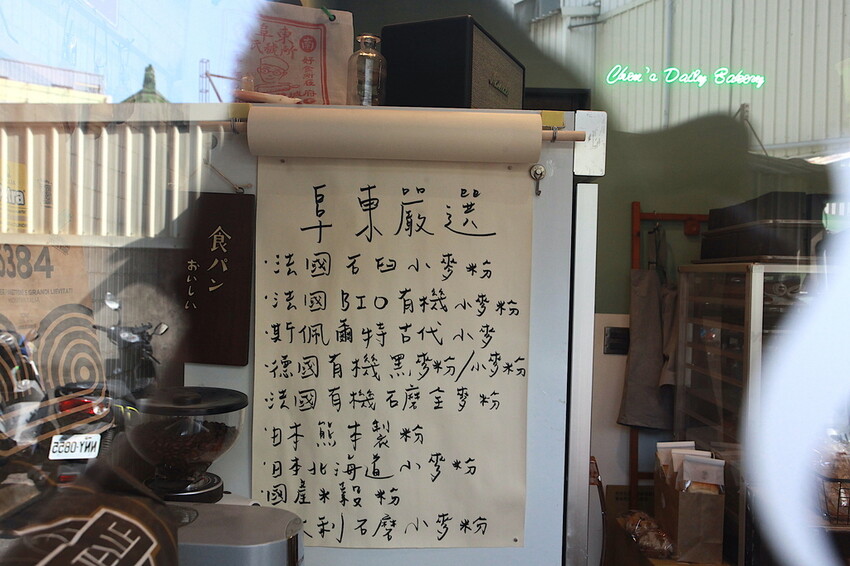 Chen's Daily Bakery
阜東嚴選
·法國石臼小麥粉
·法國BIO有機小麥粉
·斯佩爾特古代小麥
·德國有機黑麥粉/小麥粉
·法國有機石磨全麥粉
·日本熊本製粉
·日本北海道小麥粉
·國產米穀粉
大利石磨小麥粉
食パン
おいしい
6384
NNY-0855